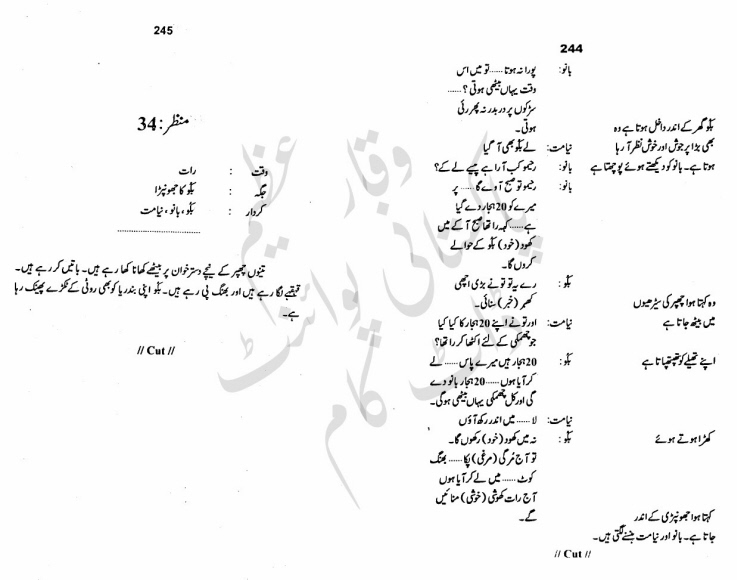 244
بانو: پورا نہ ہوتا ...... تو میں اس
وقت یہاں بیٹھی ہوتی ؟ ......
سڑکوں پر در بدر نہ پھر رئی
ہوتی۔
بگو گھر کے اندر داخل ہوتا ہے وہ
بھی بڑا پر جوش اور خوش نظر آ رہا
ہوتا ہے۔ بانو کو دیکھتے ہوئے پوچھتا ہے
نیامت: لے بگو بھی آ گیا
بانو: رنیمو کب آرا ہے پیسے لے کے؟
بانو: رنیمو تو صبح آوے گا ...... پر
میرے کو 20 ہجار دے گیا
ہے ...... کہہ را تھا صبح آ کے میں
کھود (خود) بگو کے حوالے
کروں گا۔
بگو: رے یہ تو تو نے بڑی اچھی
کھبر (خبر) سنائی۔
وہ کہتا ہوا چھپر کی سیڑھیوں
میں بیٹھ جاتا ہے
نیامت: اور تو نے اپنے 20 ہجار کا کیا کیا
جو چھمکی کے لئے اکٹھا کر را تھا؟
اپنے تھیلے کو تھپتھپاتا ہے
بگو: 20 ہجار ہیں میرے پاس ...... لے
کر آیا ہوں ...... 20 ہجار بانو دے
گی اور کل چھمکی یہاں بیٹھی ہوگی۔
نیامت: لا ...... میں اندر رکھ آؤں
کھڑا ہوتے ہوئے
بگو: نہ میں کھود (خود) رکھوں گا۔
تو آج مُرگی (مرغی) پکا ...... بھنگ
کوٹ ...... میں لے کر آیا ہوں
آج رات کھوشی (خوشی) منائیں
گے۔
کہتا ہوا جھونپڑی کے اندر
جاتا ہے۔ بانو اور نیامت ہنسنے لگتی ہیں۔
// Cut //
245
منظر: 34
وقت : رات
جگہ : بگو کا جھونپڑا
کردار : بگو ، بانو ، نیامت
تینوں چھپر کے نیچے دسترخوان پر بیٹھے کھانا کھا رہے ہیں۔ باتیں کر رہے ہیں۔
قہقہے لگا رہے ہیں اور بھنگ پی رہے ہیں۔ بگو اپنی بندریا کو بھی روٹی کے ٹکڑے پھینک رہا
ہے۔
// Cut //
وقار عظیم
پاکستانی پوائنٹ
ڈاٹ کام